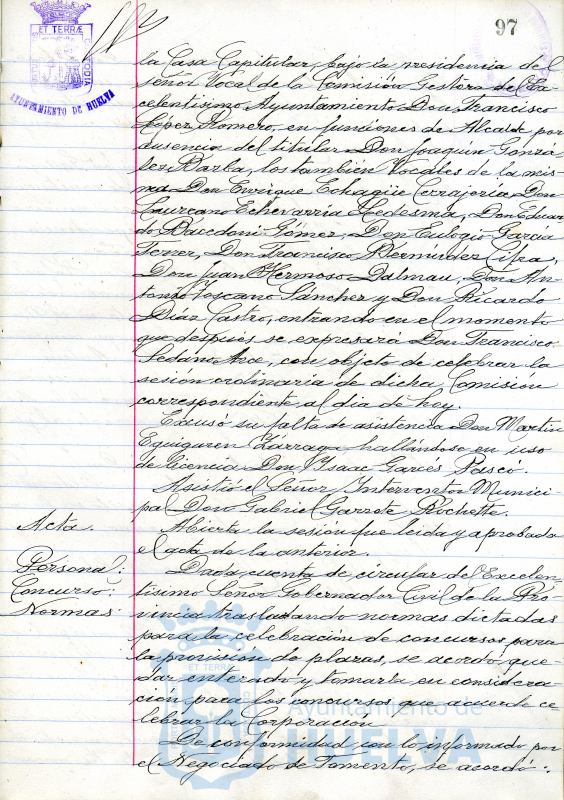 97
ET TERRÆ
CUSTODIA
AYUNTAMIENTO DE HUELVA
la Casa Capitular, bajo la presidencia del
señor Vocal de la Comisión Gestora del Ex-
celentísimo Ayuntamiento Don Francisco
López Romero, en funciones de Alcalde por
ausencia del titular Don Joaquín Gonzá-
lez Barba, los también Vocales de la mis-
ma Don Enrique Echagüe Cerrajería, Don
Laureano Echevarria Ledesma, Don Eduar-
do Bacedoni Gómez, Don Eulogio García
Ferrer, Don Francisco Bermudez Cifra,
Don Juan Hermoso Dalmau, Don An-
tonio Toscano Sánchez y Don Ricardo
Díaz Castro, entrando en el momento
que después se expresará Don Francisco
Sedano, con objeto de celebrar la
sesión ordinaria de dicha Comision
correspondiente al dia de hoy.
Excusó su falta de asistencia Don Martin
Eguiguren Lázarraga, hallándose en uso
de licencia Don Isaac Garcés Pascó.
Asistió el Señor Interventor Munici-
pal Don Gabriel Garrote Rochette.
Acta.
Abierta la sesión fue leida y aprobada
el acta de la anterior.
Personal:
Concurso:
Normas:
Dada cuenta de circular del Excelen-
tísimo Señor Gobernador Civil de la Pro-
vincia trasladando normas dictadas
para la celebración de concursos para
la provision de plazas, se acordó que-
dar enterado y tomarla en considera-
ción para los concursos que acuerde ce-
lebrar la Corporación
De conformidad con lo informado por
el Negociado de Fomento, se acordó:
ET TERRÆ
Ayuntamiento de
HUELVA